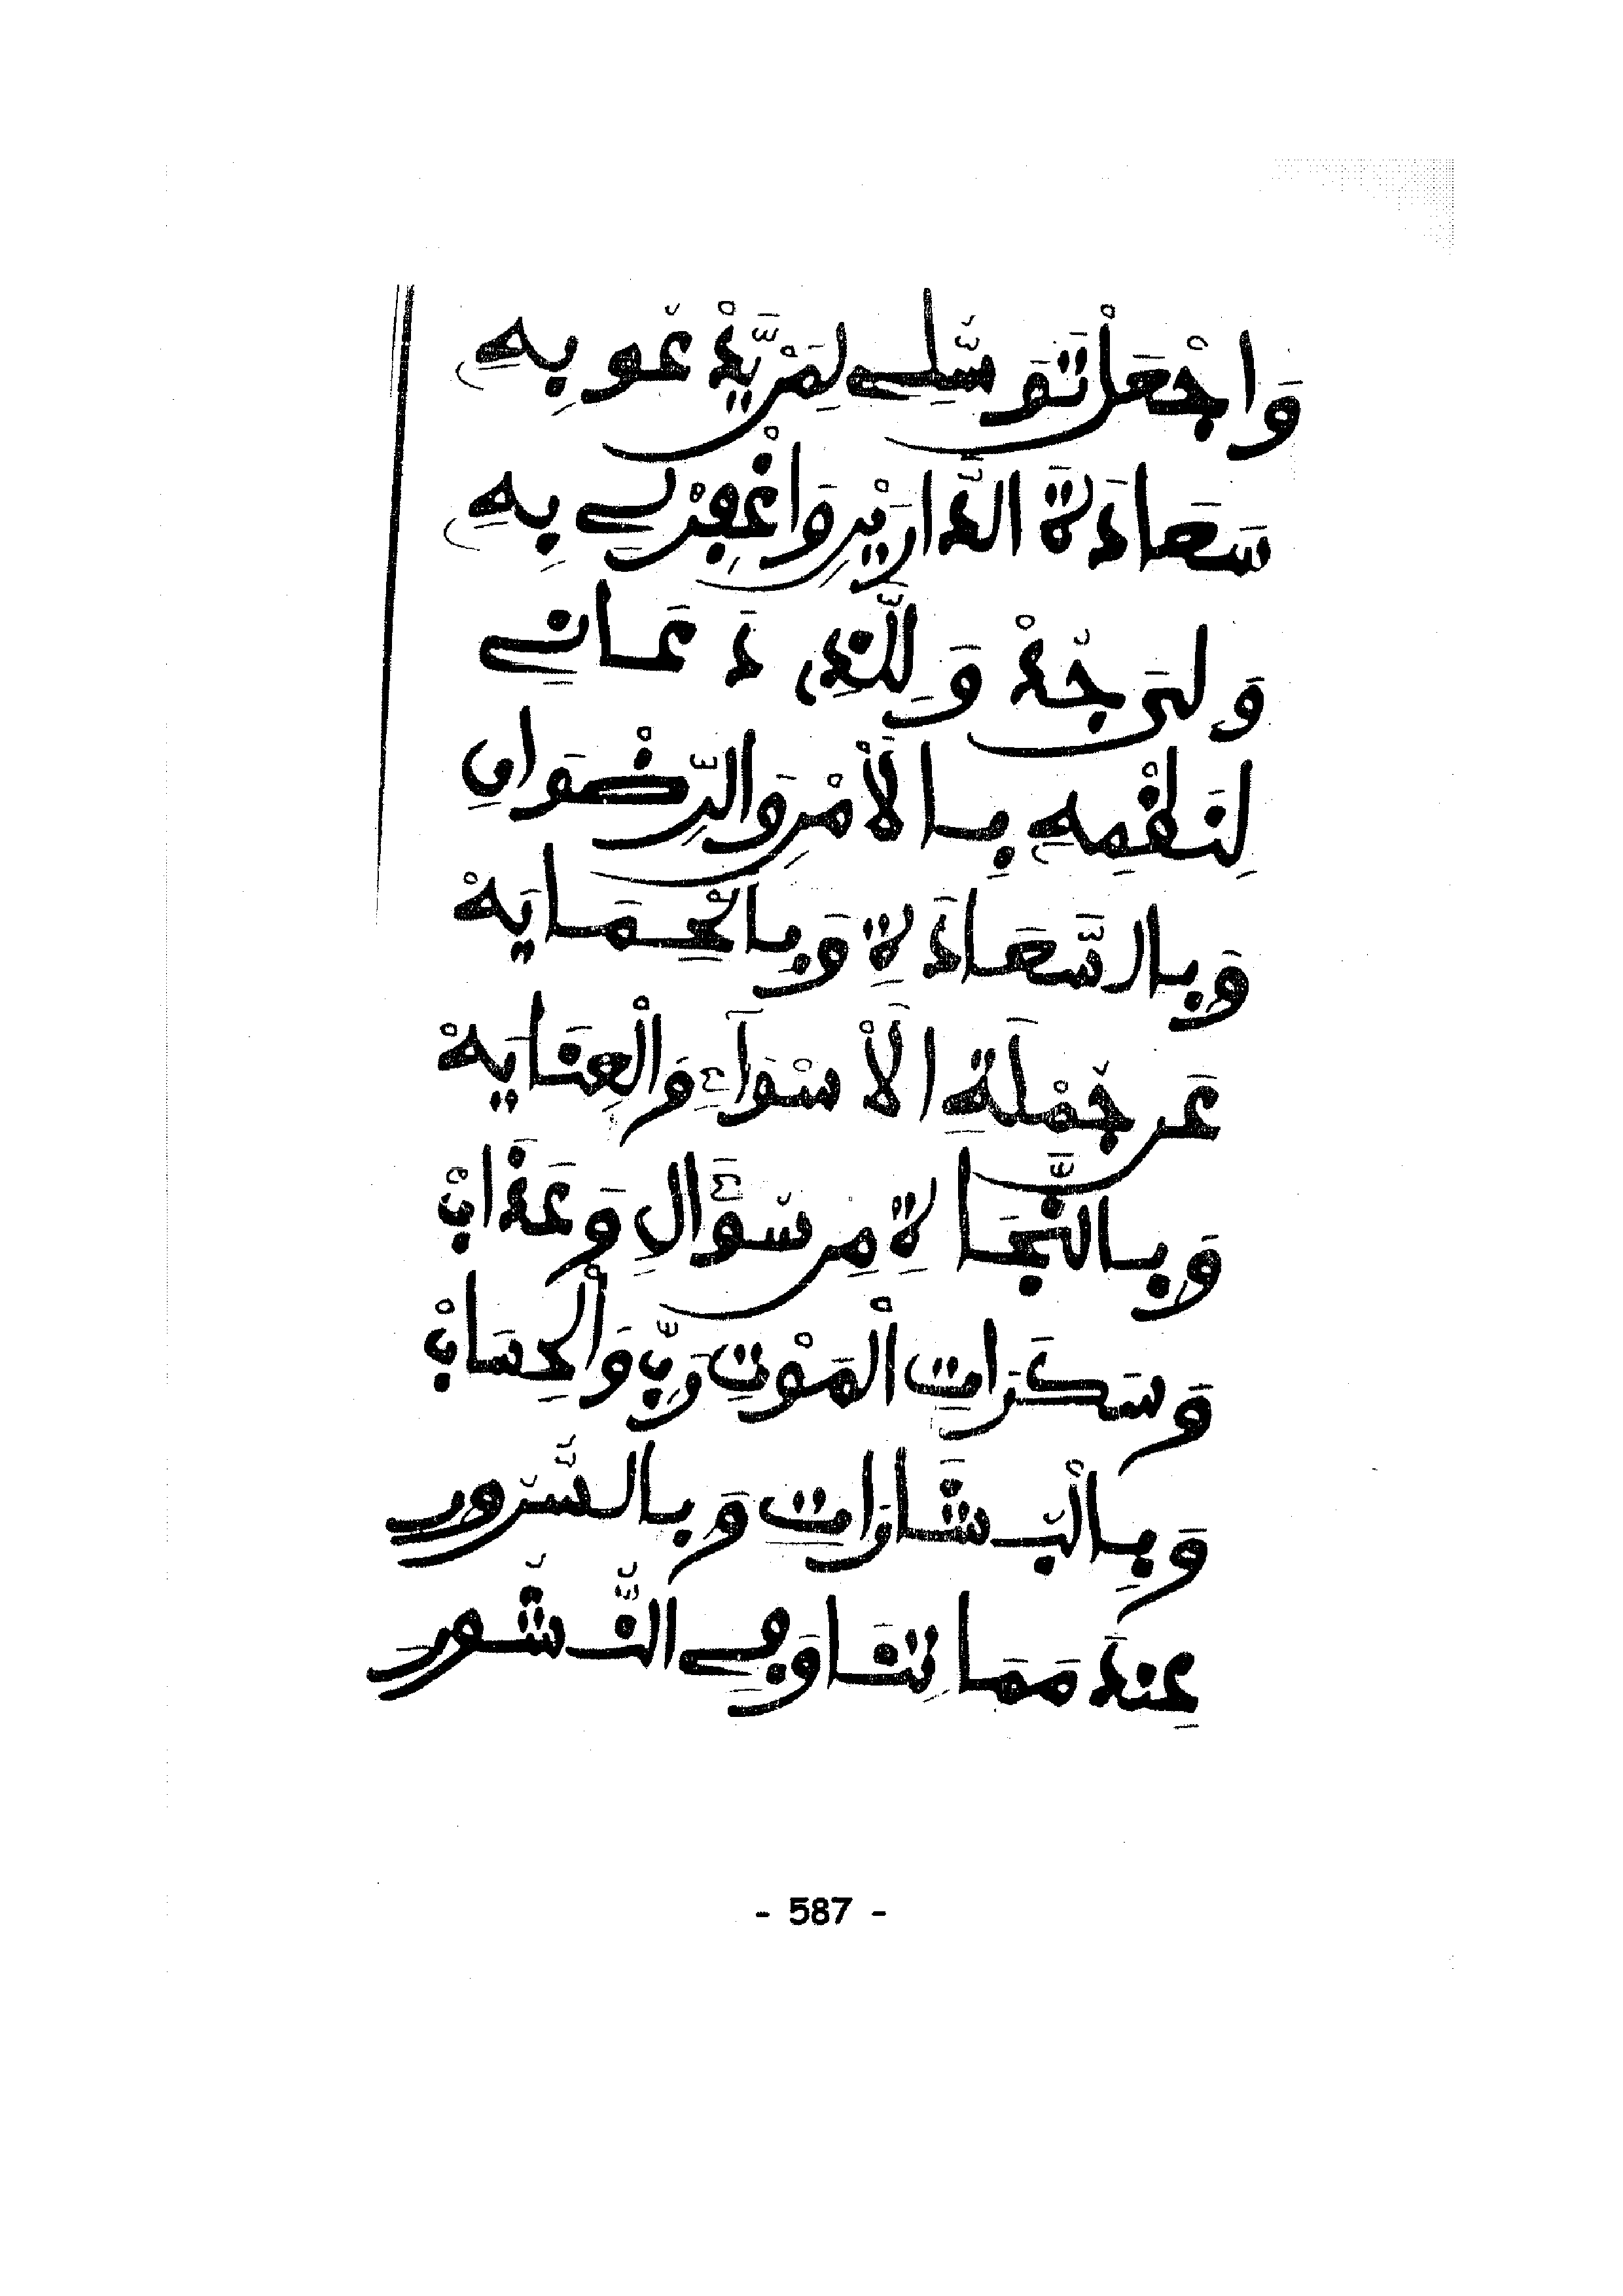 وَاجْعَلْ تَوَسُّلِے لِمَنْ يَّدْعُو بِهِ
سَعَادَةَ الدَّارَيْنِ وَاغْفِرْ لِے بِهِ
وَلِمَن جُدْ وَلِلَّذِے دَعَانِے
لِنَظْمِهِ بِالَامْرِ وَالرِّضْوَانِ
وَبِالسَّعَادَةِ وَبِالْحِمَايَهْ
عَن جُمْلَةِ الَاسْوَاءِ وَالْعِنَايَهْ
وَبِالنَّجَاةِ مِن سُؤَالِ وَعَذَابْ
وَسَكَرَاتِ الْمَوْتِ رَبِّ وَالْحِسَابْ
وَبِالْبُشَارَاتِ وَبِالسُّرُورِ
عِندَ مَمَاتِنَا وَفِے النُّشُورِ
- 587 -